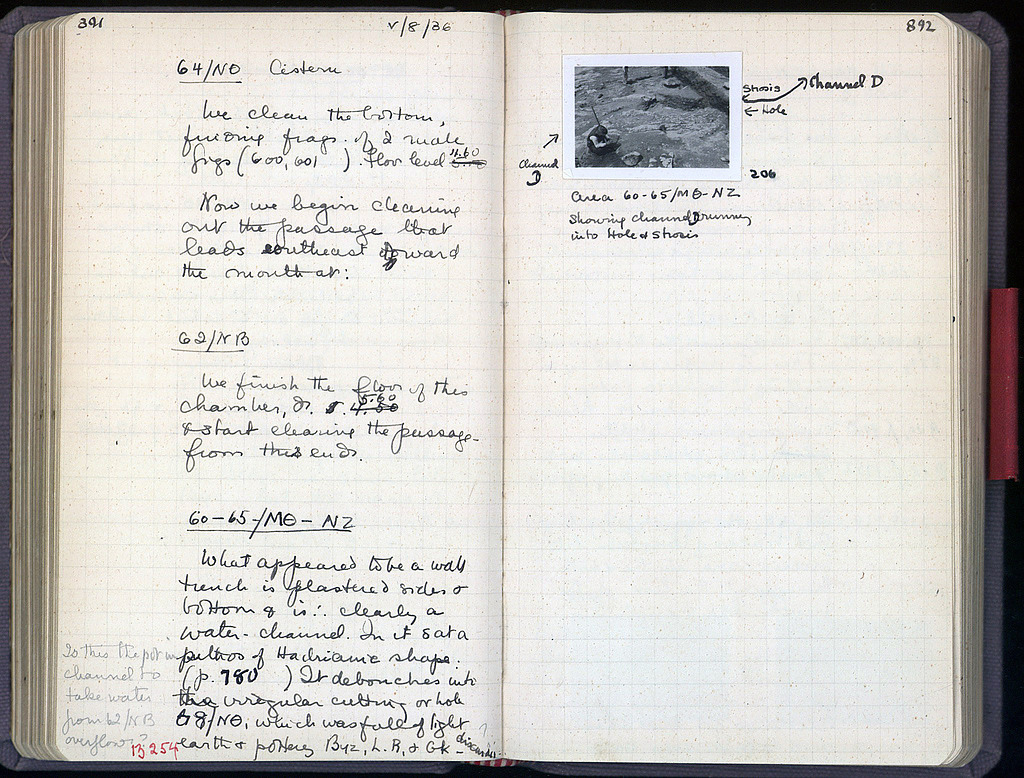 391
V/8/36
64/NΘ Cistern
We clean the bottom,
finding frags. of 2 male
figs (600, 601 ). Floor level 11.60
Now we begin cleaning
out the passage that
leads southeast toward
the mouth at:
62/NB
We finish the floor of this
chamber, 5.60
& start clearing the passage
from this end.
60-65/MΘ-NZ
What appeared to be a wall
trench is plastered sides &
bottom & is ∴ clearly a
water-channel. In it sat a
pithos of Hadrianic shape.
(p. 780 ) It debouches into
the irregular cutting or hole
/NΘ, which was full of light
earth & pottery Byz, L.R, & Gk - discarded?
Is this the pot in
channel to
take water
from 62/NB
overflow?
B 254
892
Strosis
Channel D
← Hole
Channel
D
206
Area 60-65/MΘ-NZ
Showing channel D running
into Hole & strosis